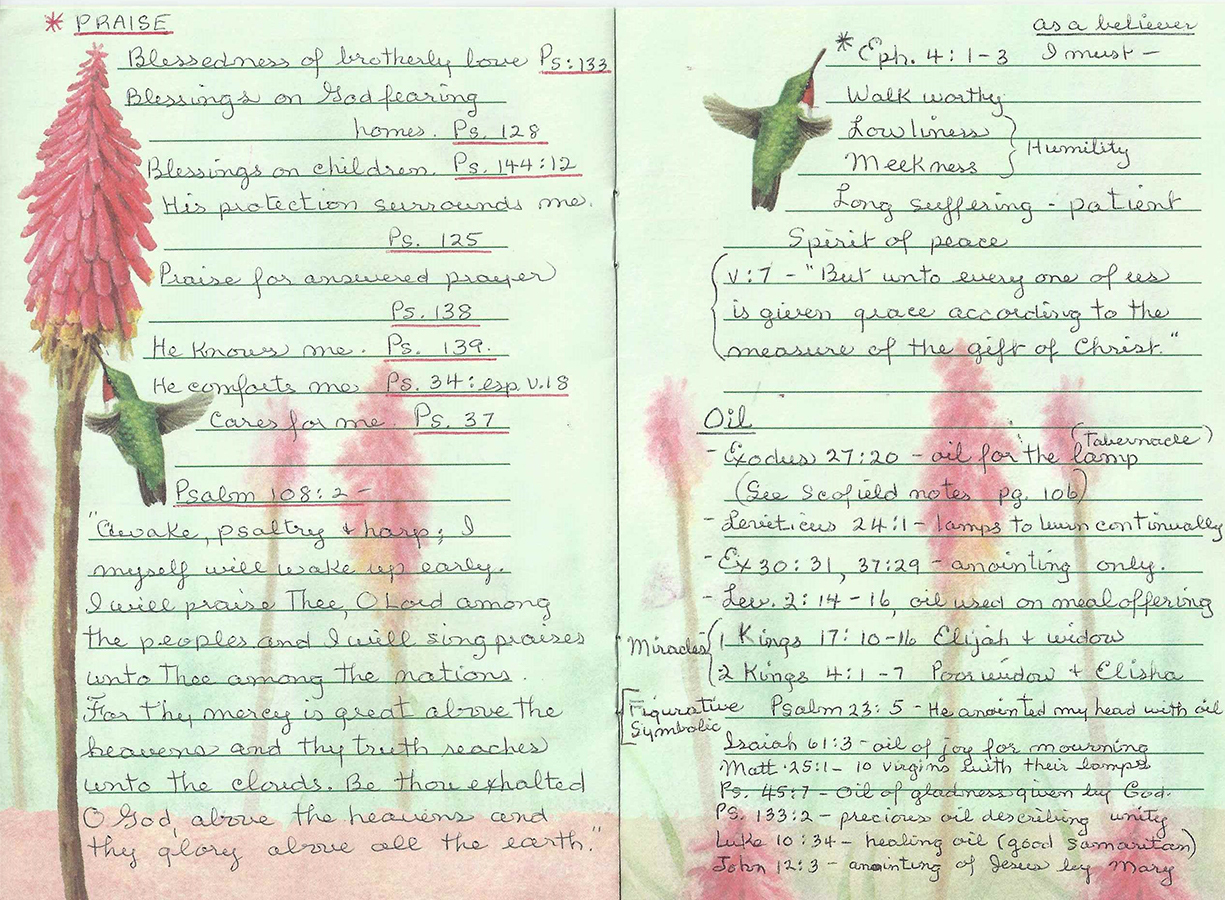 * PRAISE
Blessedness of brotherly love Ps:133
Blessings on God fearing
homes. Ps. 128
Blessings on children. Ps. 144:12
His protection surrounds me.
Ps. 125
Praise for answered prayer
Ps. 138
He knows me. Ps. 139.
He comforts me Ps. 34: esp v.18
Cares for me. Ps. 37
Psalm 108:2 -
"Awake, psaltry & harp; I
myself will wake up early.
I will praise Thee, O Lord among
the peoples and I will sing praises
unto Thee among the nations.
For thy mercy is great above the
heavens and thy truth reaches
unto the clouds. Be thou exhalted
O God, above the heavens and
thy glory above all the earth."
as a believer
* Eph. 4:1-3 I must -
Walk worthy
Lowliness
Humility
Meekness
Long suffering - patient
Spirit of peace
v:7 - "But unto every one of us
is given grace according to the
measure of the gift of Christ."
Oil
(Tabernacle)
- Exodus 27:20 - oil for the lamp
(See Scofield notes pg. 106)
- Leviticus 24:1 - lamps to burn continually
- Ex 30:31, 37:29 - anointing only.
- Lev. 2:14-16, oil used on meal offering
Miracles { 1 Kings 17:10-16 Elijah & widow
2 Kings 4:1-7 Poor widow & Elisha
[Figurative Psalm 23:5 - He anointed my head with oil
Symbolic
Isaiah 61:3 - oil of joy for mourning
Matt. 25:1 - 10 virgins with their lamps
Ps. 45:7 - Oil of gladness given by God.
Ps. 133:2 - precious oil describing unity
Luke 10:34 - healing oil (good samaritan)
John 12:3 - anointing of Jesus by Mary